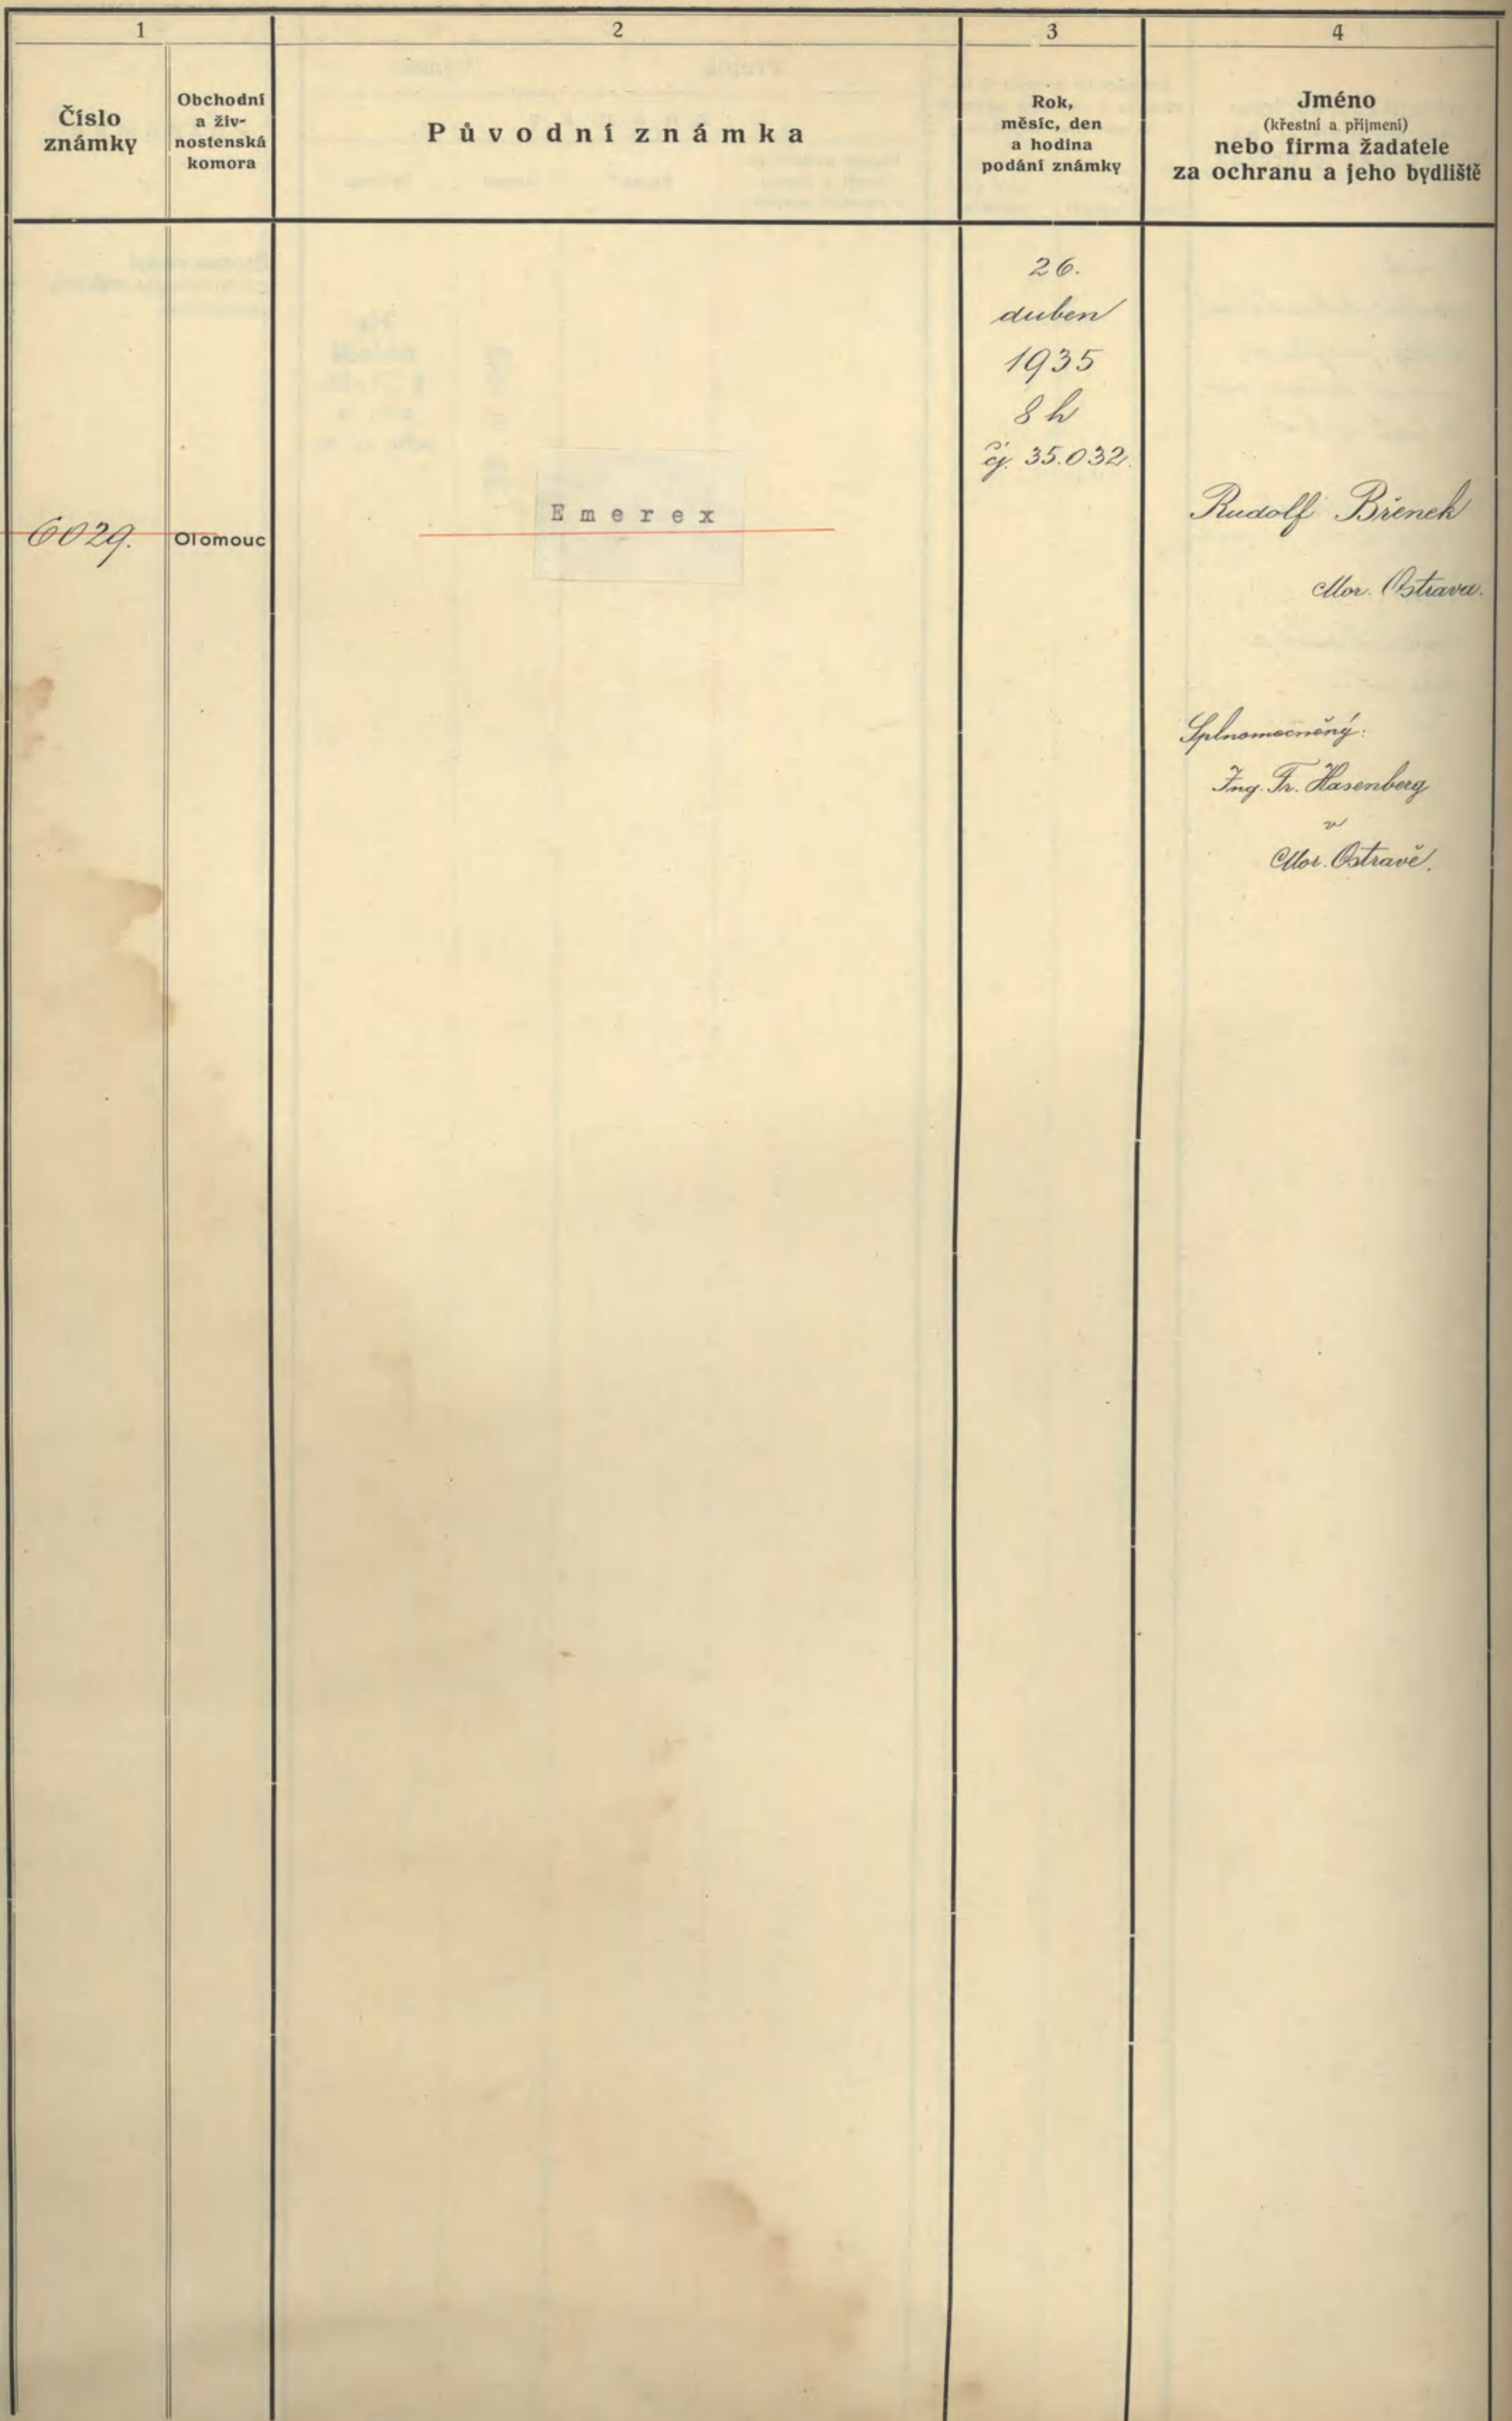 1
2
3
4
Číslo
známky
Obchodní
a živ-
nostenská
komora
Původní známka
Rok,
měsíc, den
a hodina
podání známky
Jméno
(křestní a příjmení)
nebo firma žadatele
za ochranu a jeho bydliště
6029.
Olomouc
Emerex
26.
duben
1935
8 h
čj. 35.032.
Rudolf Břenek
Mor. Ostrava.
Splnomocněný:
Ing. Fr. Hasenberg
v
Mor. Ostravě.